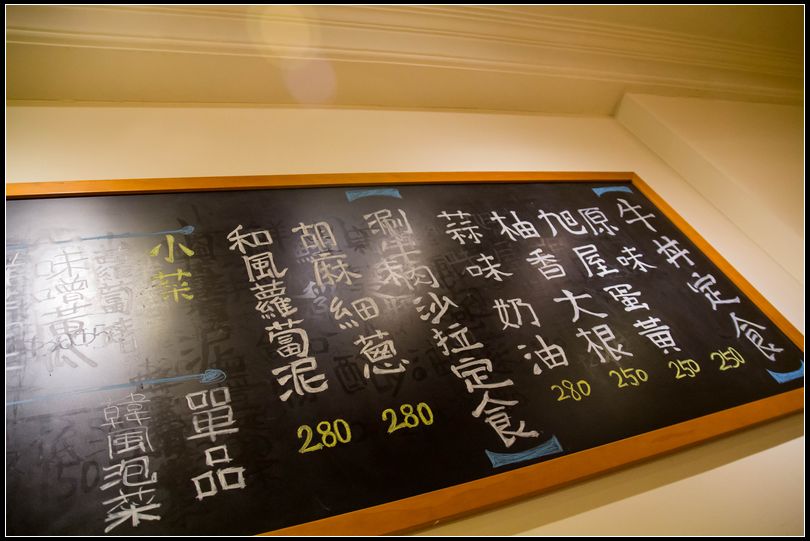 牛丼定食
原味 250
旭屋蛋黃 250
柚香大根 250
蒜味奶油 280
涮豬肉沙拉定食
胡麻細蔥 280
和風蘿蔔泥 280
小菜
單品
韓風泡菜
味噌